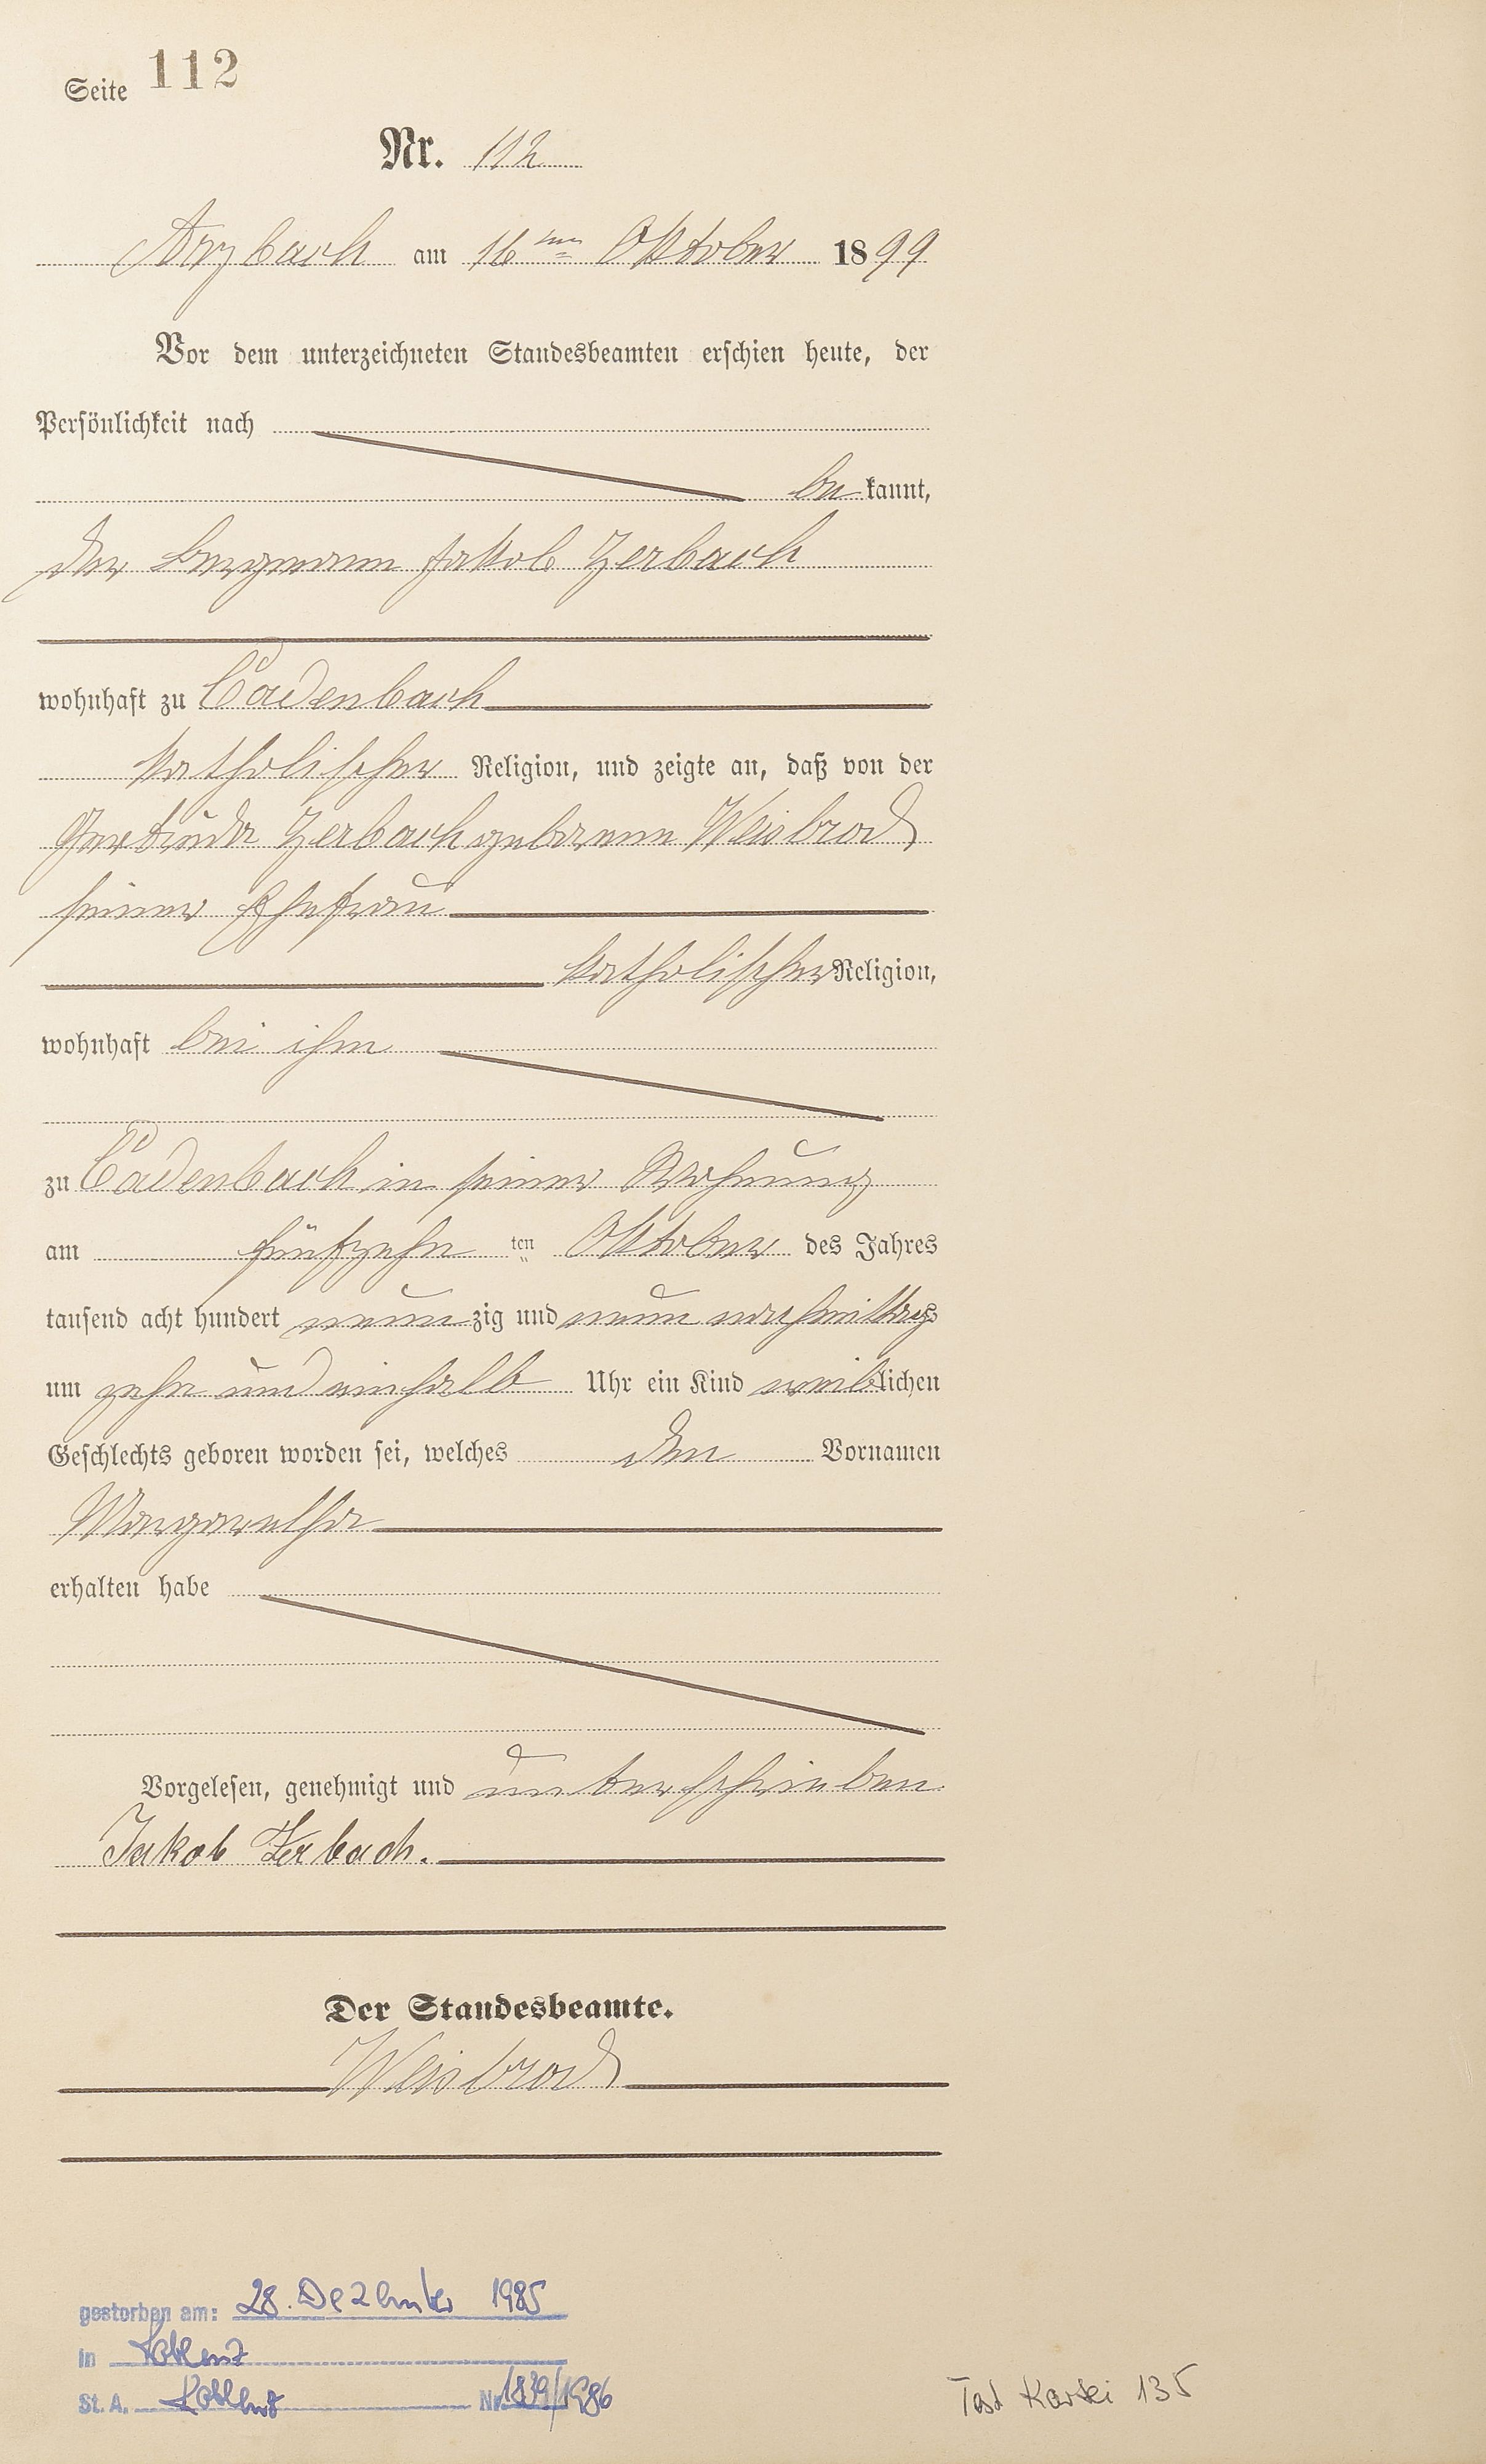 Seite 112
Nr. 112
Arzbach am 16ten Oktober 1899
Vor dem unterzeichneten Standesbeamten erschien heute, der
Persönlichkeit nach
be kannt,
der Bergmann Jakob Zerbach
wohnhaft zu Cadenbach
katholischer Religion, und zeigte an, daß von der
Gertruda Zerbach geborene Weisbrod
seiner Ehefrau
katholischer Religion,
wohnhaft bei ihm
zu Cadenbach in seiner Wohnung
am fünfzehn ten Oktober des Jahres
tausend acht hundert neun zig und neun nachmittags
um zehn und einhalb Uhr ein Kind weiblichen
Geschlechts geboren worden sei, welches den Vornamen
Margaretha
erhalten habe
Vorgelesen, genehmigt und unterschrieben
Jakob Zerbach.
Der Standesbeamte.
Weisbrod
gestorben am: 28. Dezember 1985
in Koblenz
St. A. Koblenz Nr. 1839/1986
135